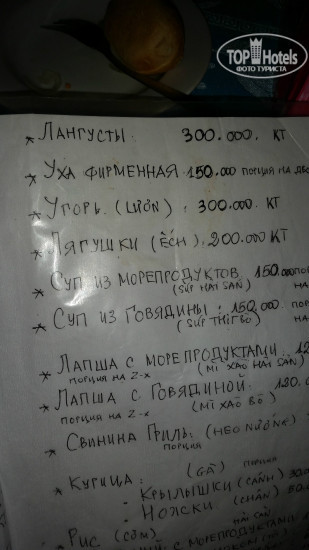 TOP Hotels
ФОТО ТУРИСТА
* ЛАНГУСТЫ. 300.000. КТ
* УХА ФИРМЕННАЯ 150.000 ПОРЦИЯ НА
* УГОРЬ. (LƯƠN). 300.000. КТ
* ЛЯГУШКИ (ẾCH). 200.000 КТ
* СУП ИЗ МОРЕПРОДУКТОВ. 150.000
(SÚP HẢI SẢN)
* СУП ИЗ ГОВЯДИНЫ. 150.000
(SÚP THỊT BÒ)
* ЛАПША С МОРЕПРОДУКТАМИ.
ПОРЦИЯ НА 2-Х (MÌ XÀO HẢI SẢN)
* ЛАПША С ГОВЯДИНОЙ.
ПОРЦИЯ НА 2-Х (MÌ XÀO BÒ)
* СВИНИНА ГРИЛЬ. (HEO NƯỚNG)
ПОРЦИЯ
* КУРИЦА. (GÀ) ПОРЦИЯ
- КРЫЛЫШКИ (CÁNH)
- НОЖКИ (CHÂN)
* РИС (CƠM) HẢI SẢN
С МОРЕПРОДУКТАМИ